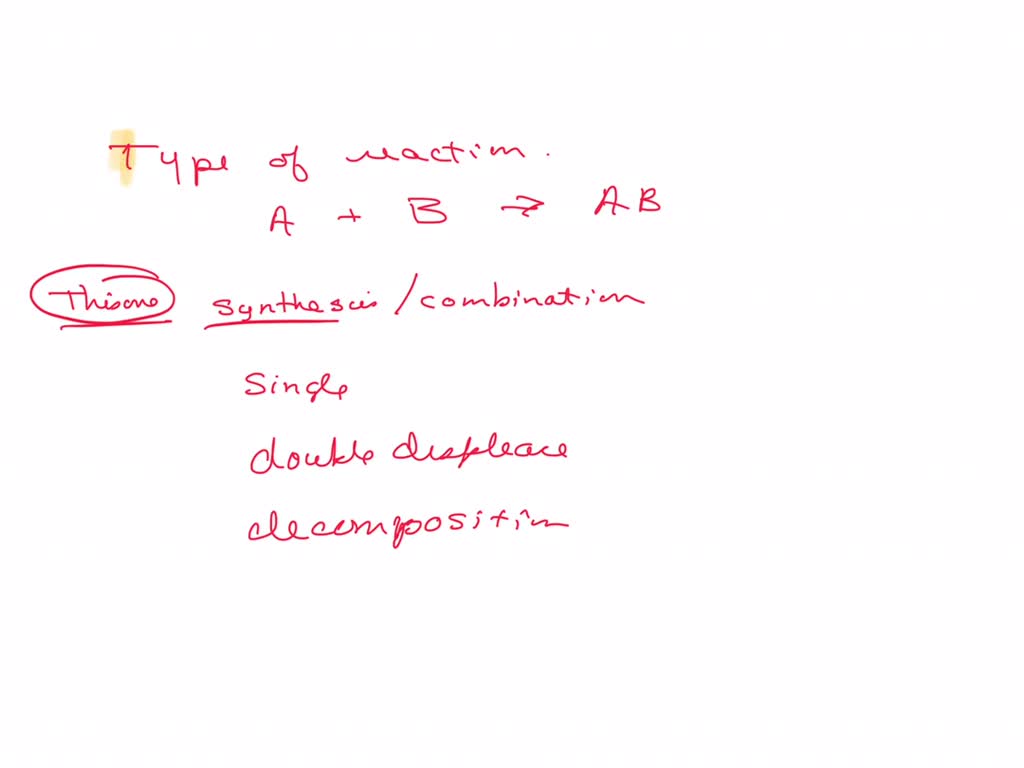 Type of reaction.
A + B → AB
This one synthesis/combination
Single
double displeace
decomposition